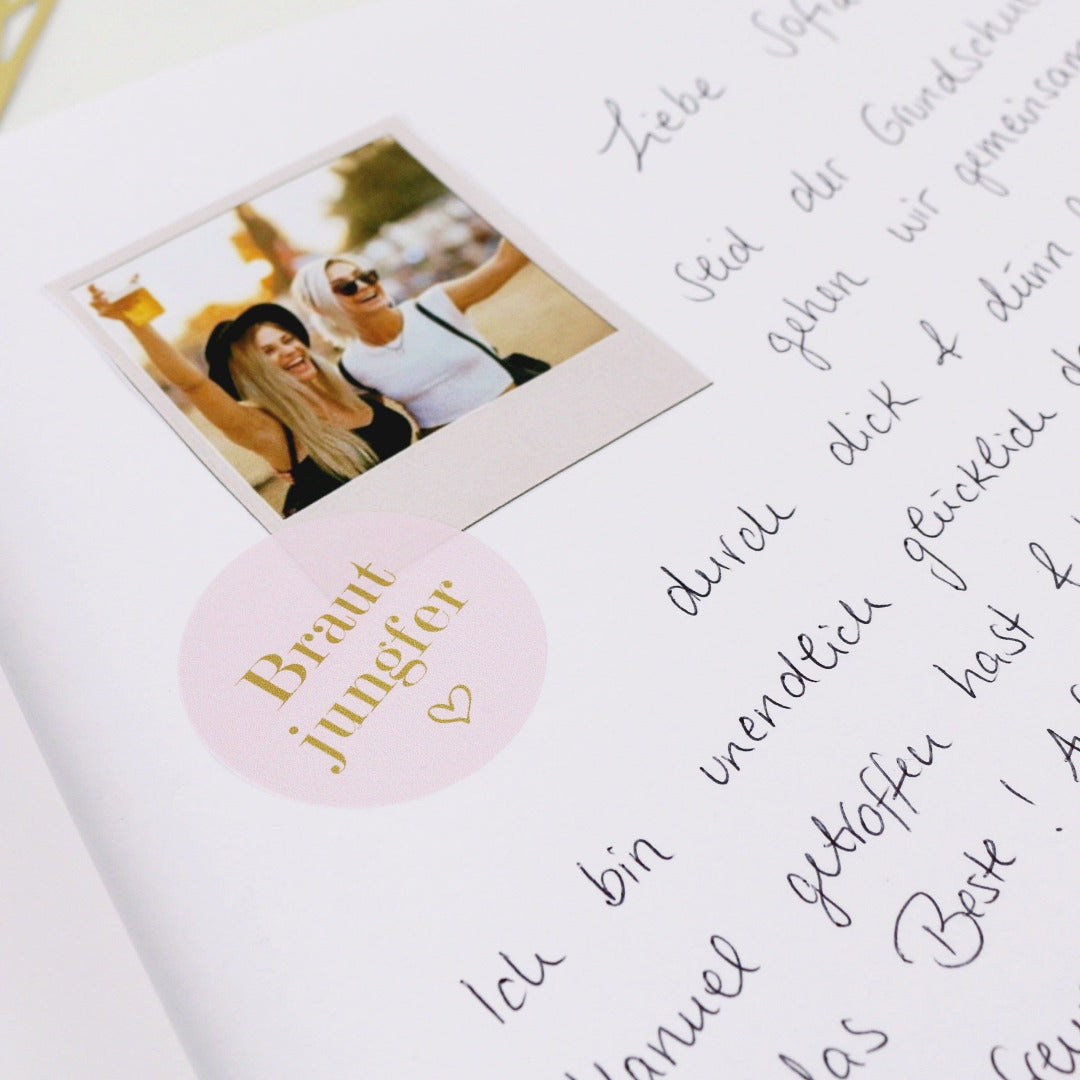 Liebe Sofia
seid der
gehen wir gemeinsam
durch dick & dünn
Ich bin unendlich glücklich
Manuel getroffen hast &
das Beste!
Braut
jungfer